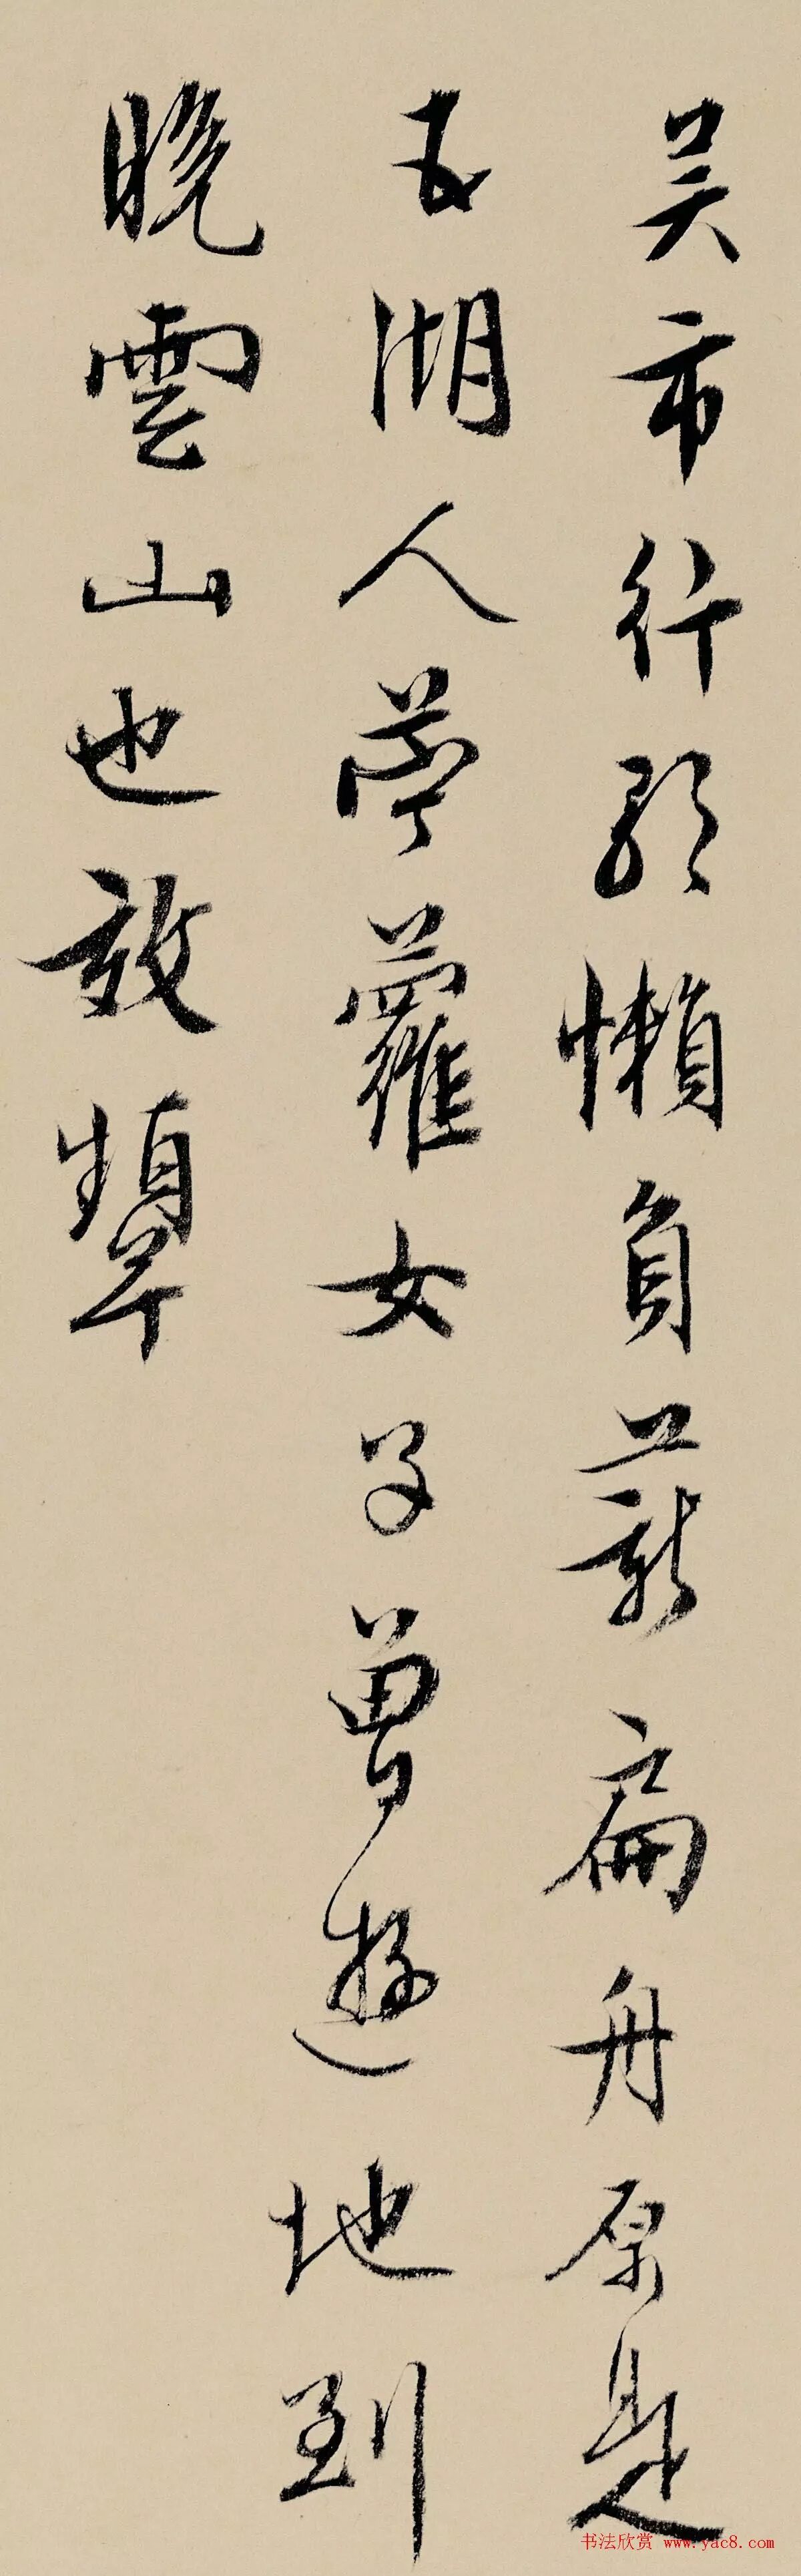 吴市行歌懒負薪扁舟原是
五湖人苧蘿女子曾遊地到
晩雲山也效顰
书法欣赏 www.yac8.com